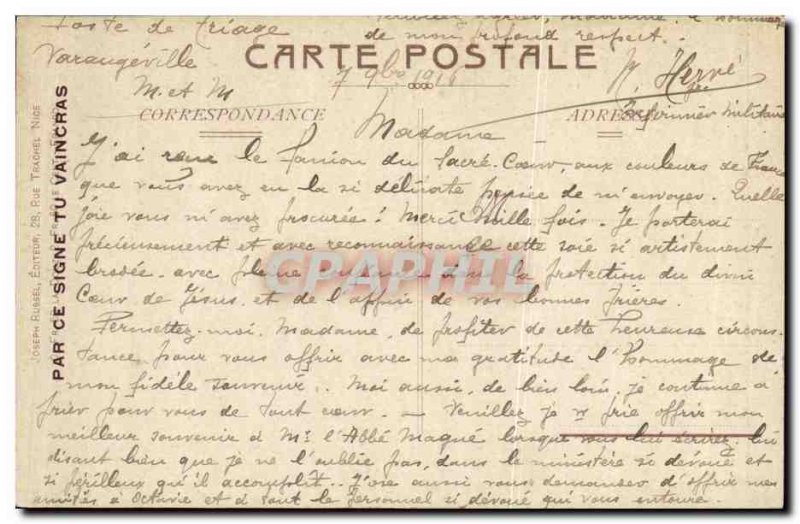 Poste de triage
Varangéville
M. et M
7 9bre 1916
CARTE POSTALE
CORRESPONDANCE
ADRESSE
de mon profond respect.
Hervé
Infirmier militaire
Madame
J'ai reçu le fanion du Sacré-Coeur, aux couleurs de France
que vous avez eu la si délicate pensée de m'envoyer. Quelle
joie vous m'avez procurée! Merci mille fois. Je porterai
précieusement et avec reconnaissance cette soie si artistement
brodée, avec pleine confiance dans la protection du divin
Coeur de Jésus, et de l'appui de vos bonnes prières.
Permettez-moi, Madame, de profiter de cette heureuse circons-
tance pour vous offrir avec ma gratitude l'hommage de
mon fidèle souvenir. Moi aussi, de bien loin, je continue à
prier pour vous de tout coeur. - Veuillez je v prie offrir mon
meilleur souvenir à Mr l'Abbé Magné lorsque vous lui écrirez, lui
disant bien que je ne l'oublie pas, dans le ministère si dévoué et
si périlleux qu'il accomplit. J'ose aussi vous demander d'offrir mes
amitiés à Octavie et à tout le personnel si dévoué qui vous entoure.
JOSEPH RUSSEL, ÉDITEUR, 28, RUE TRACHEL NICE
PAR CE SIGNE TU VAINCRAS
GRAPHIL